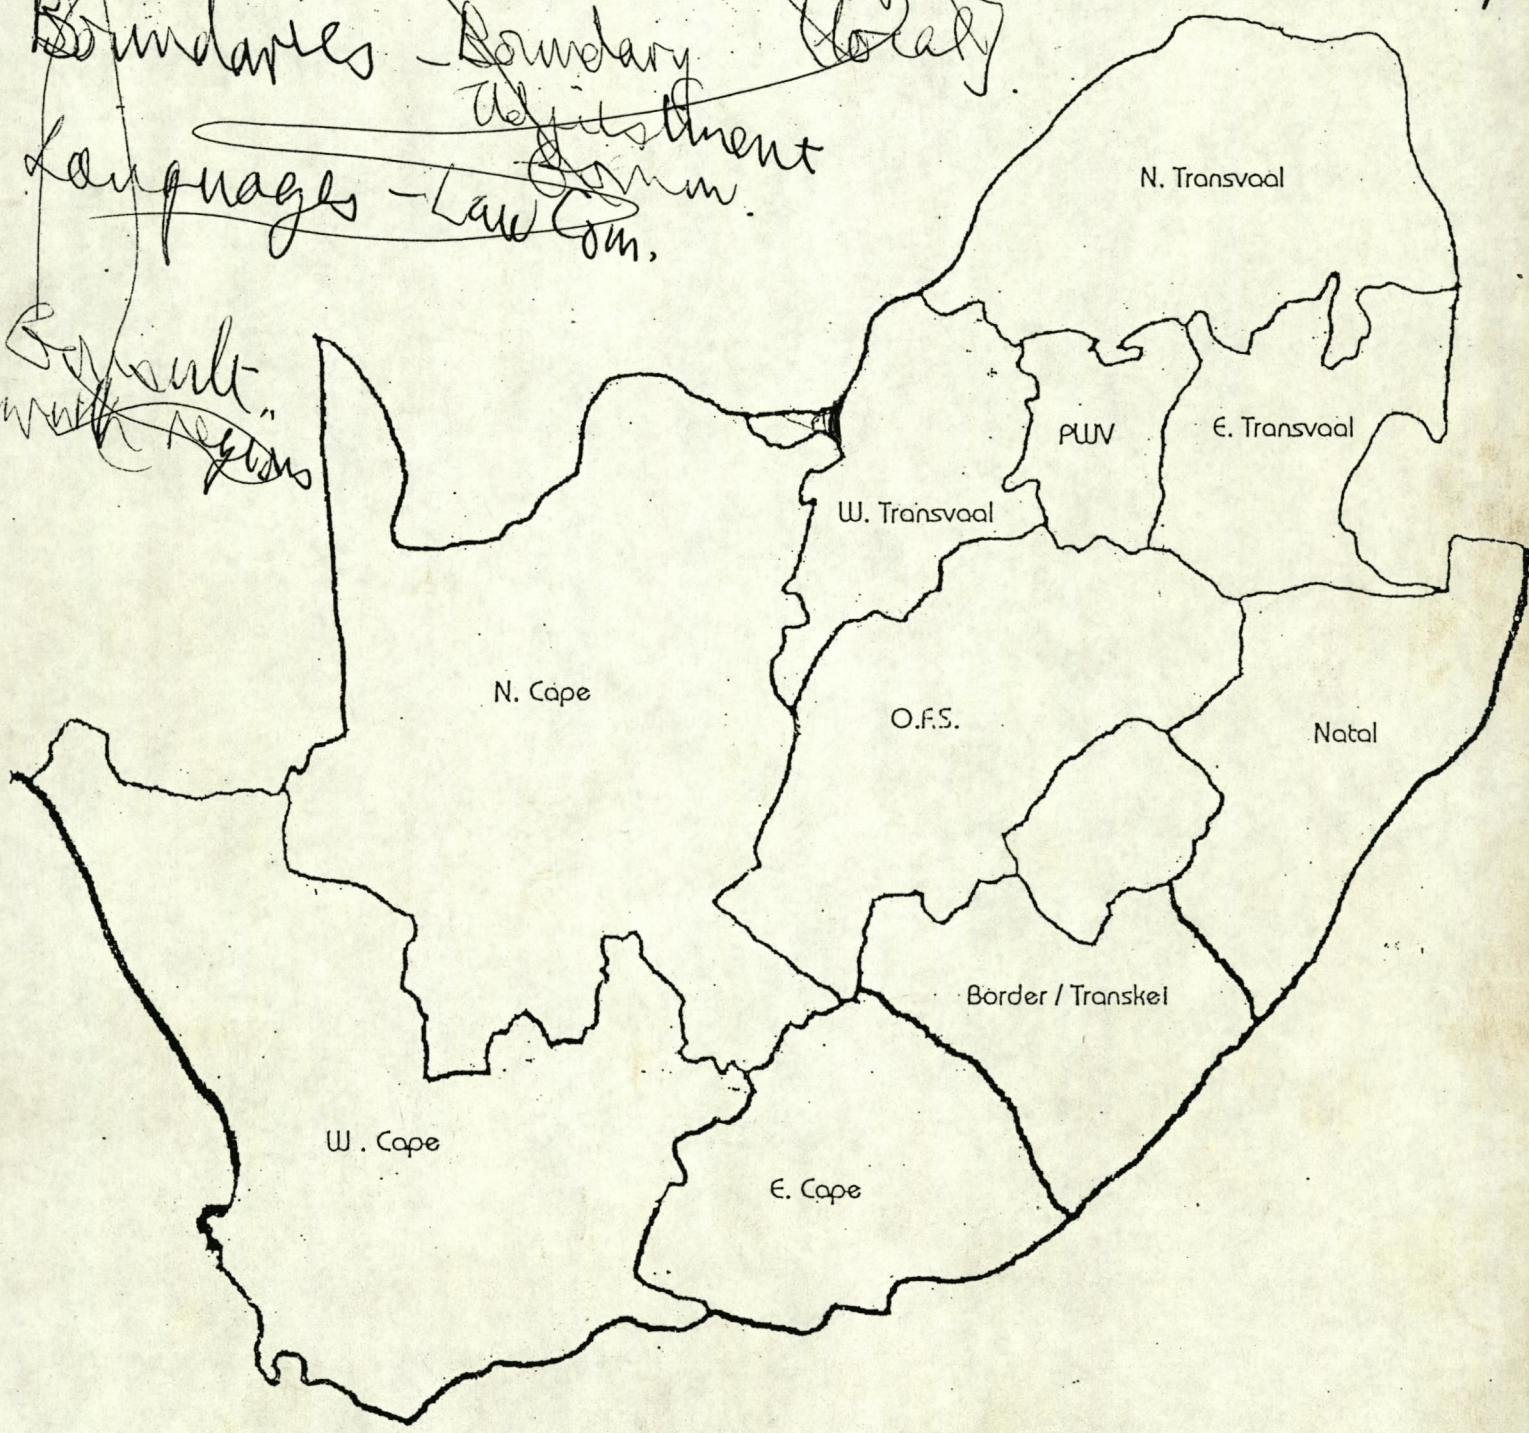 Boundaries - Boundary (Local)
Adjustment
Comm.
Languages - Law Com.
Consult
with regions
N. Transvaal
PWV
E. Transvaal
W. Transvaal
N. Cape
O.F.S.
Natal
Border / Transkei
W. Cape
E. Cape